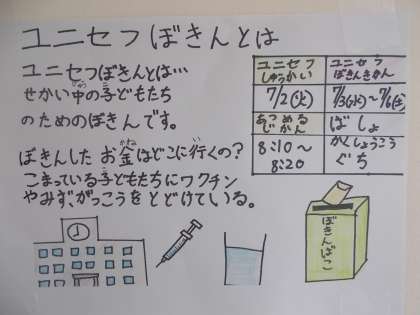 ユニセフぼきんとは
ユニセフぼきんとは…
せかい中の子どもたち
のためのぼきんです。
ぼきんしたお金はどこに行くの?
こまっている子どもたちにワクチン
やみず、がっこうをとどけている。
ユニセフ
しゅうかい
ユニセフ
ぼきんきかん
7/2(火)
7/3(水)~7/6(土)
あつめる
じかん
ばしょ
8:10~
8:20
かくしょうこう
ぐち
ぼきんばこ